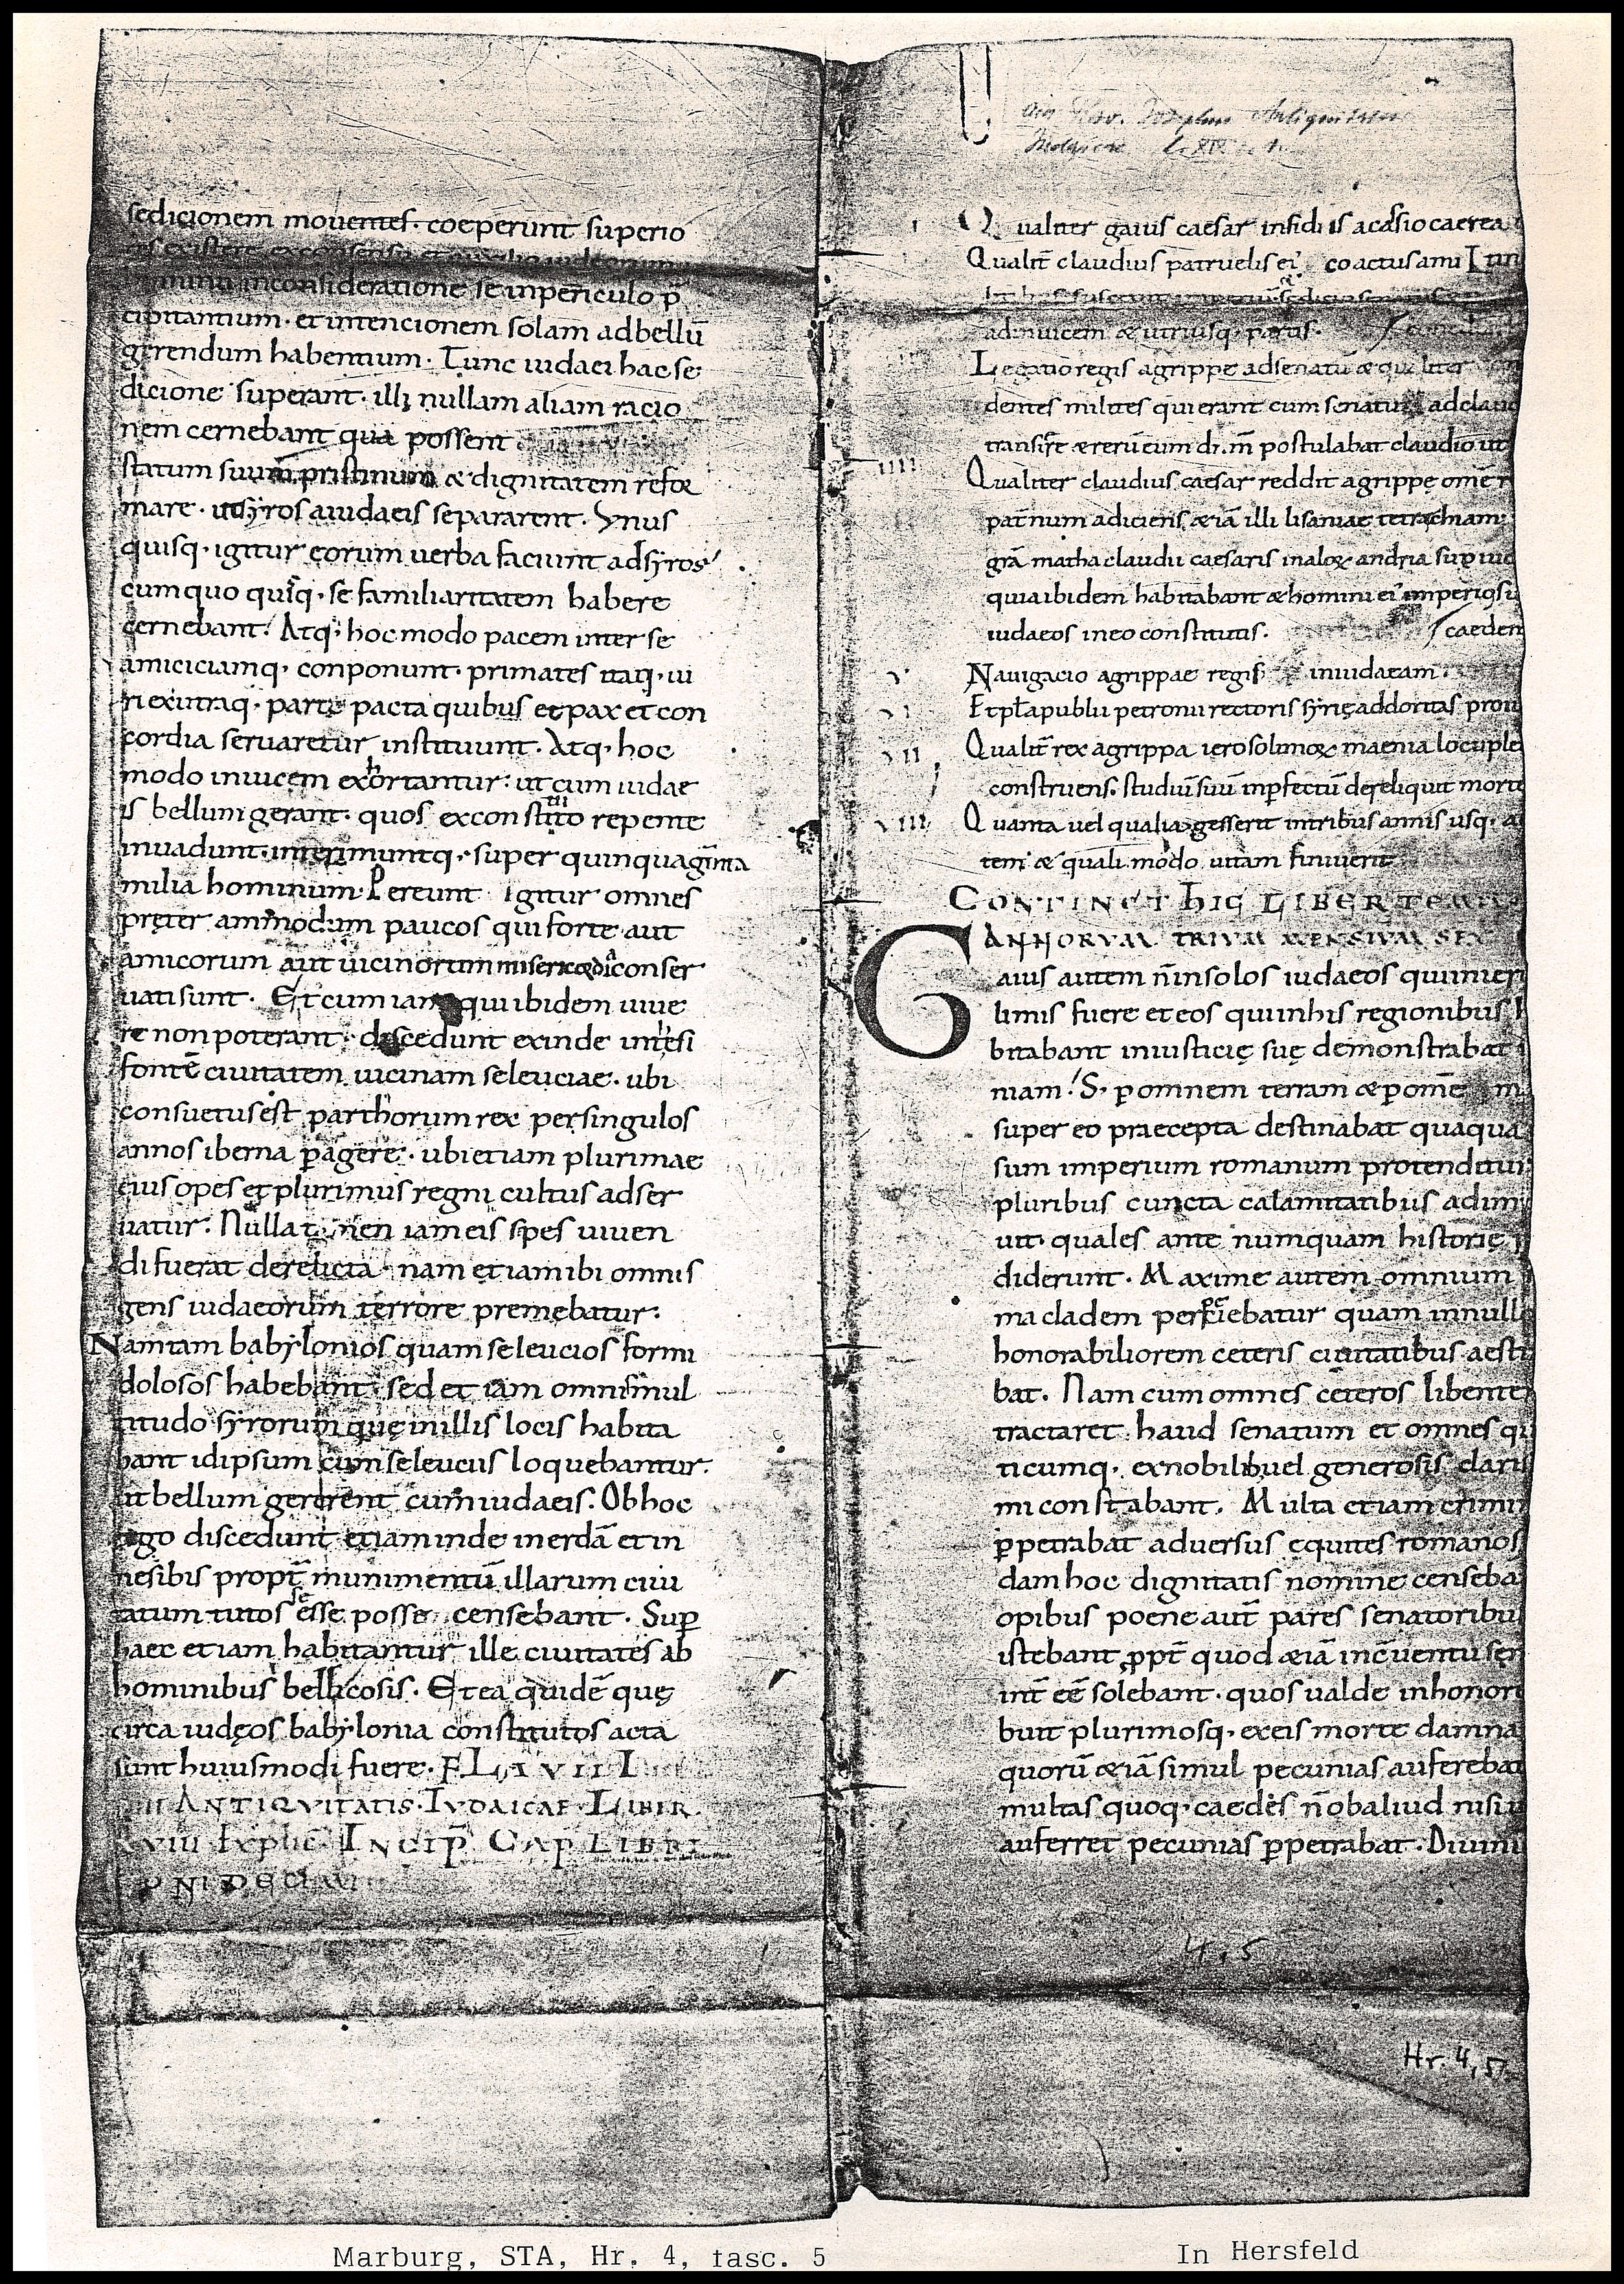 sedicionem mouentes. coeperunt superio
res existere exconsensu et auxilio iudaeorum
inconsideratione se inpericulo p̄
cipitantium. et intencionem solam adbellū
gerendum habentium. Tunc iudaei hac se
dicione superant. illi nullam aliam racio
nem cernebant qua possent
statum suum pristinum & dignitatem refor
mare. ut syros aiudaeis separarent. Vnus
quisq. igitur eorum uerba faciunt adsyros
cum quo quisq. se familiaritatem habere
cernebant. Atq. hoc modo pacem inter se
amiciciamq. conponunt. primates itaq. ui
ri exutraq. parte pacta quibus et pax et con
cordia seruaretur instituunt. Atq. hoc
modo inuicem exhortantur. ut cum iudae
is bellum gerant. quos exconstituto repente
inuadunt. interimuntq. super quinquaginta
milia hominum. Pereunt igitur omnes
pręter ammodum paucos qui forte aut
amicorum aut uicinorum misericordia conser
uati sunt. Et cum iam qui ibidem uiue
re non poterant. discedunt exinde inthesi
fontē ciuitatem uicinam seleuciae. ubi
consuetus est parthorum rex per singulos
annos iberna p̱agere. ubi etiam plurimae
eius opes et plurimus regni cultus adser
uatur. Nulla tamen iam eis spes uiuen
di fuerat derelicta. nam etiam ibi omnis
gens iudaeorum terrore premebatur.
Nam tam babylonios quam seleucios formi
dolosos habebant. sed et iam omnis mul
titudo syrorum quę inillis locis habita
bant id ipsum cum seleuciis loquebantur.
ut bellum gererent cum iudaeis. Ob hoc
ergo discedunt etiam inde inerdā et in
nesibis propt̄ munimentū illarum ciui
tatum tutos se esse posse censebant. Sup̱
haec etiam habitantur ille ciuitates ab
hominibus bellicosis. Et ea quidē quę
circa iudęos babylonia constitutos acta
sunt huiusmodi fuere. FLAVII I
ANTIQVITATIS IVDAICAE LIBER
XVIII Explic INCIP̄ CAP LIBRI
NI DECIMI
Qualiter gaius caesar insidiis acassio caerea
Qualit̄ claudius patruelis ei' coactus a mi
adinuicem & utriusq. partis.
Legatio regis agrippe adsenatū & qualiter
dentes milites qui erant cum senatu ad claud
transir̄t & rerū cum dr̄m postulabat claudio ut
IIII Qualiter claudius caesar reddit agrippe omē r
paternum adiciens, & iā illi lisaniae tetrachiam.
grāmatha claudii caesaris inalexandria sup iud
quia ibidem habitabant & homini ei' imperio su
iudaeos ineo constitutis. / caeden
V Nauigacio agrippae regis iniudaeam.
VI Et pt̄a publii petronii rectoris syrię ad doritas prou
VII Qualit̄ rex agrippa ierosolimox maenia locuple
construens. studiū suū inp̱fectū dereliquit morte
VIII Quanta uel qualia gesserit intribus annis usq. a
tem & quali modo uitam finiuerit
CONTINET HIC LIBER TEM
ANNORVM TRIVM MENSIVM SEX
Gaius autem n̄insolos iudaeos quinier
limis fuere et eos quinhis regionibus h
bitabant iniusticię suę demonstrabat
niam. S. p̱omnem terram & p̱omē m
super eo praecepta destinabat quaqua
sum imperium romanum protenditur
pluribus cuncta calamitatibus adim
uit quales ante numquam historię
diderunt. Maxime autem omnium
ma cladem perficiebatur quam innull
honorabiliorem ceteris ciuitatibus aesti
bat. Nam cum omnes ceteros libente
tractaret. haud senatum et omnes qu
ticumq. exnobilib. uel generosis claris
mi constabant. Multa etiam crimi
p̱petrabat aduersus equites romanos
dam hoc dignitatis nomine censeba
opibus poene aut̄ pares senatoribu
istebant ppt̄ quod & iā inc̄uentu sen
int̄ eē solebant. quos ualde inhonor
buit plurimosq. exeis morte damna
quorū & iā simul pecunias auferebat
multas quoq. caedes n̄ob aliud nisi u
auferret pecunias p̱petrabat. Diuini
4, 5
Hr. 4, 5
Marburg, STA, Hr. 4, fasc. 5
In Hersfeld